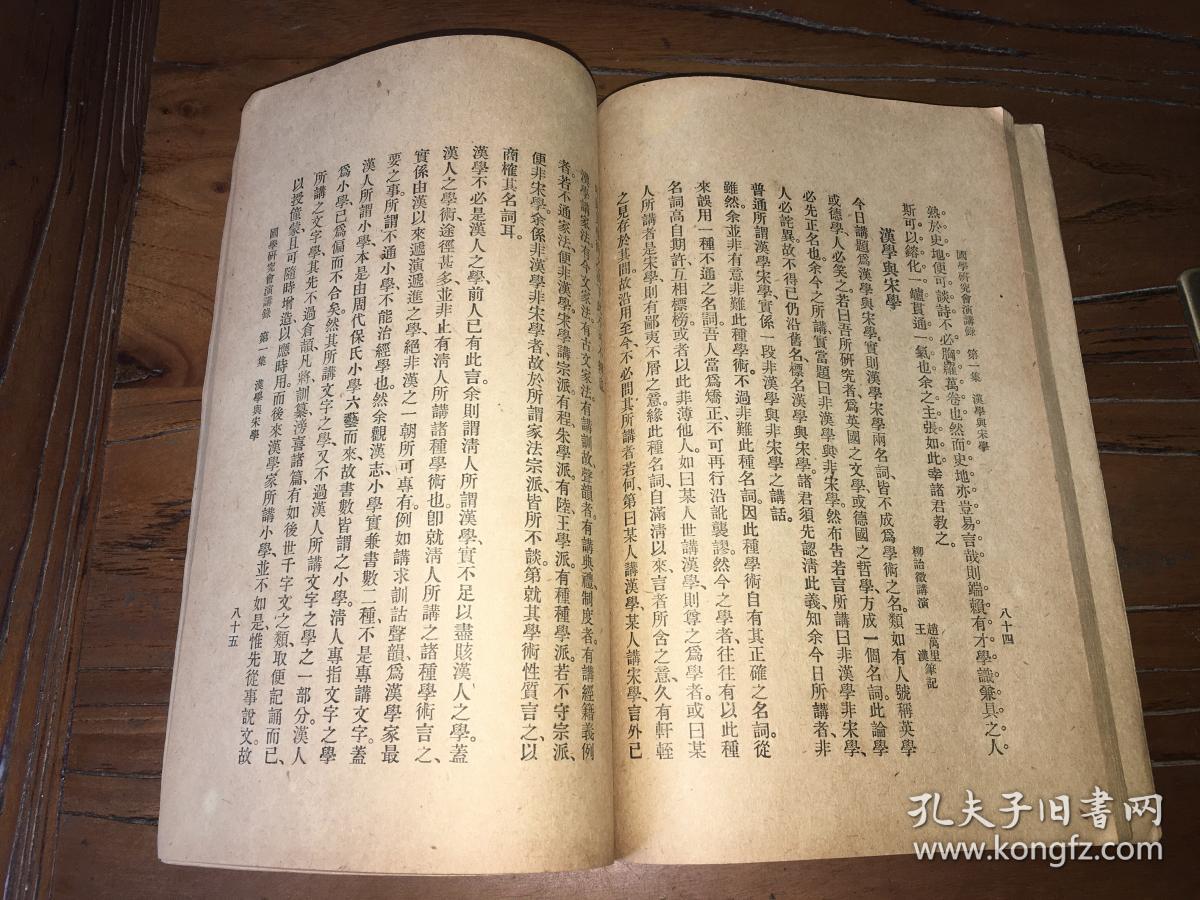 國學研究會演講錄　第一集　漢學與宋學
八十四
熟於史地便可談詩不必胸羅萬卷也然而史地亦豈易言哉則端賴有才學識兼具之人。
斯可以鎔化一爐貫通一氣也余之主張如此幸諸君教之。
漢學與宋學
柳詒徵講演
趙萬里
王漢
筆記
今日講題爲漢學與宋學實則漢學宋學兩名詞、皆不成爲學術之名。類如有人號稱英學
或德學人必笑之。若曰吾所研究者爲英國之文學或德國之哲學方成一個名詞。此論學
必先正名也。余今之所講實當題曰非漢學與非宋學。然布告若言所講曰非漢學非宋學、
人必詫異。故不得已仍沿舊名標名漢學與宋學。諸君須先認清此義知余今日所講者、非
普通所謂漢學宋學、實係一段非漢學與非宋學之講話。
雖然、余並非有意非難此種學術、不過非難此種名詞。因此種學術自有其正確之名詞。從
來誤用一種不通之名詞。吾人當爲矯正、不可再行沿訛襲謬。然今之學者、往往有以此種
名詞高自期許、互相標榜。或者以此非薄他人。如曰某人世講漢學、則尊之爲學者。或曰某
人所講者是宋學、則有鄙夷不屑之意。緣此種名詞、自滿清以來、言者所含之意、久有軒輊
之見存於其間。故沿用至今、不必問其所講者若何。第曰某人講漢學、某人講宋學、言外已
漢學講家法。有今文家法。有古文家法。有講訓故、聲韻者。有講典禮、制度者。有講經籍義例
者。若不通家法便非漢學。宋學講宗派。有程、朱學派。有陸、王學派。有種種學派。若不守宗派、
便非宋學。余係非漢學非宋學者。故於所謂家法宗派、皆所不談。第就其學術性質言之、以
商榷其名詞耳。
漢學不必是漢人之學、前人已有此言。余則謂清人所謂漢學、實不足以盡賅漢人之學。蓋
漢人之學術途徑甚多、並非止有清人所講諸種學術也。卽就清人所講之諸種學術言之、
實係由漢以來遞演遞進之學、絕非漢之一朝所可專有。例如講求訓詁聲韻、爲漢學家最
要之事。所謂不通小學、不能治經學也。然余觀漢志、小學實兼書數二種、不是專講文字。蓋
漢人所謂小學、本是由周代保氏小學六藝而來、故書數皆謂之小學。清人專指文字之學
爲小學、已爲偏而不合矣。然其所講文字之學、又不過漢人所講文字之學之一部分。漢人
所講之文字學、其先不過倉頡、凡將、訓纂、滂喜諸篇、有如後世千字文之類、取便記誦而已、
以授僮蒙、且可隨時增造以應時用。而後來漢學家所講小學、並不如是。惟先從事說文、故
國學研究會演講錄　第一集　漢學與宋學
八十五
孔夫子旧书网
www.kongfz.com